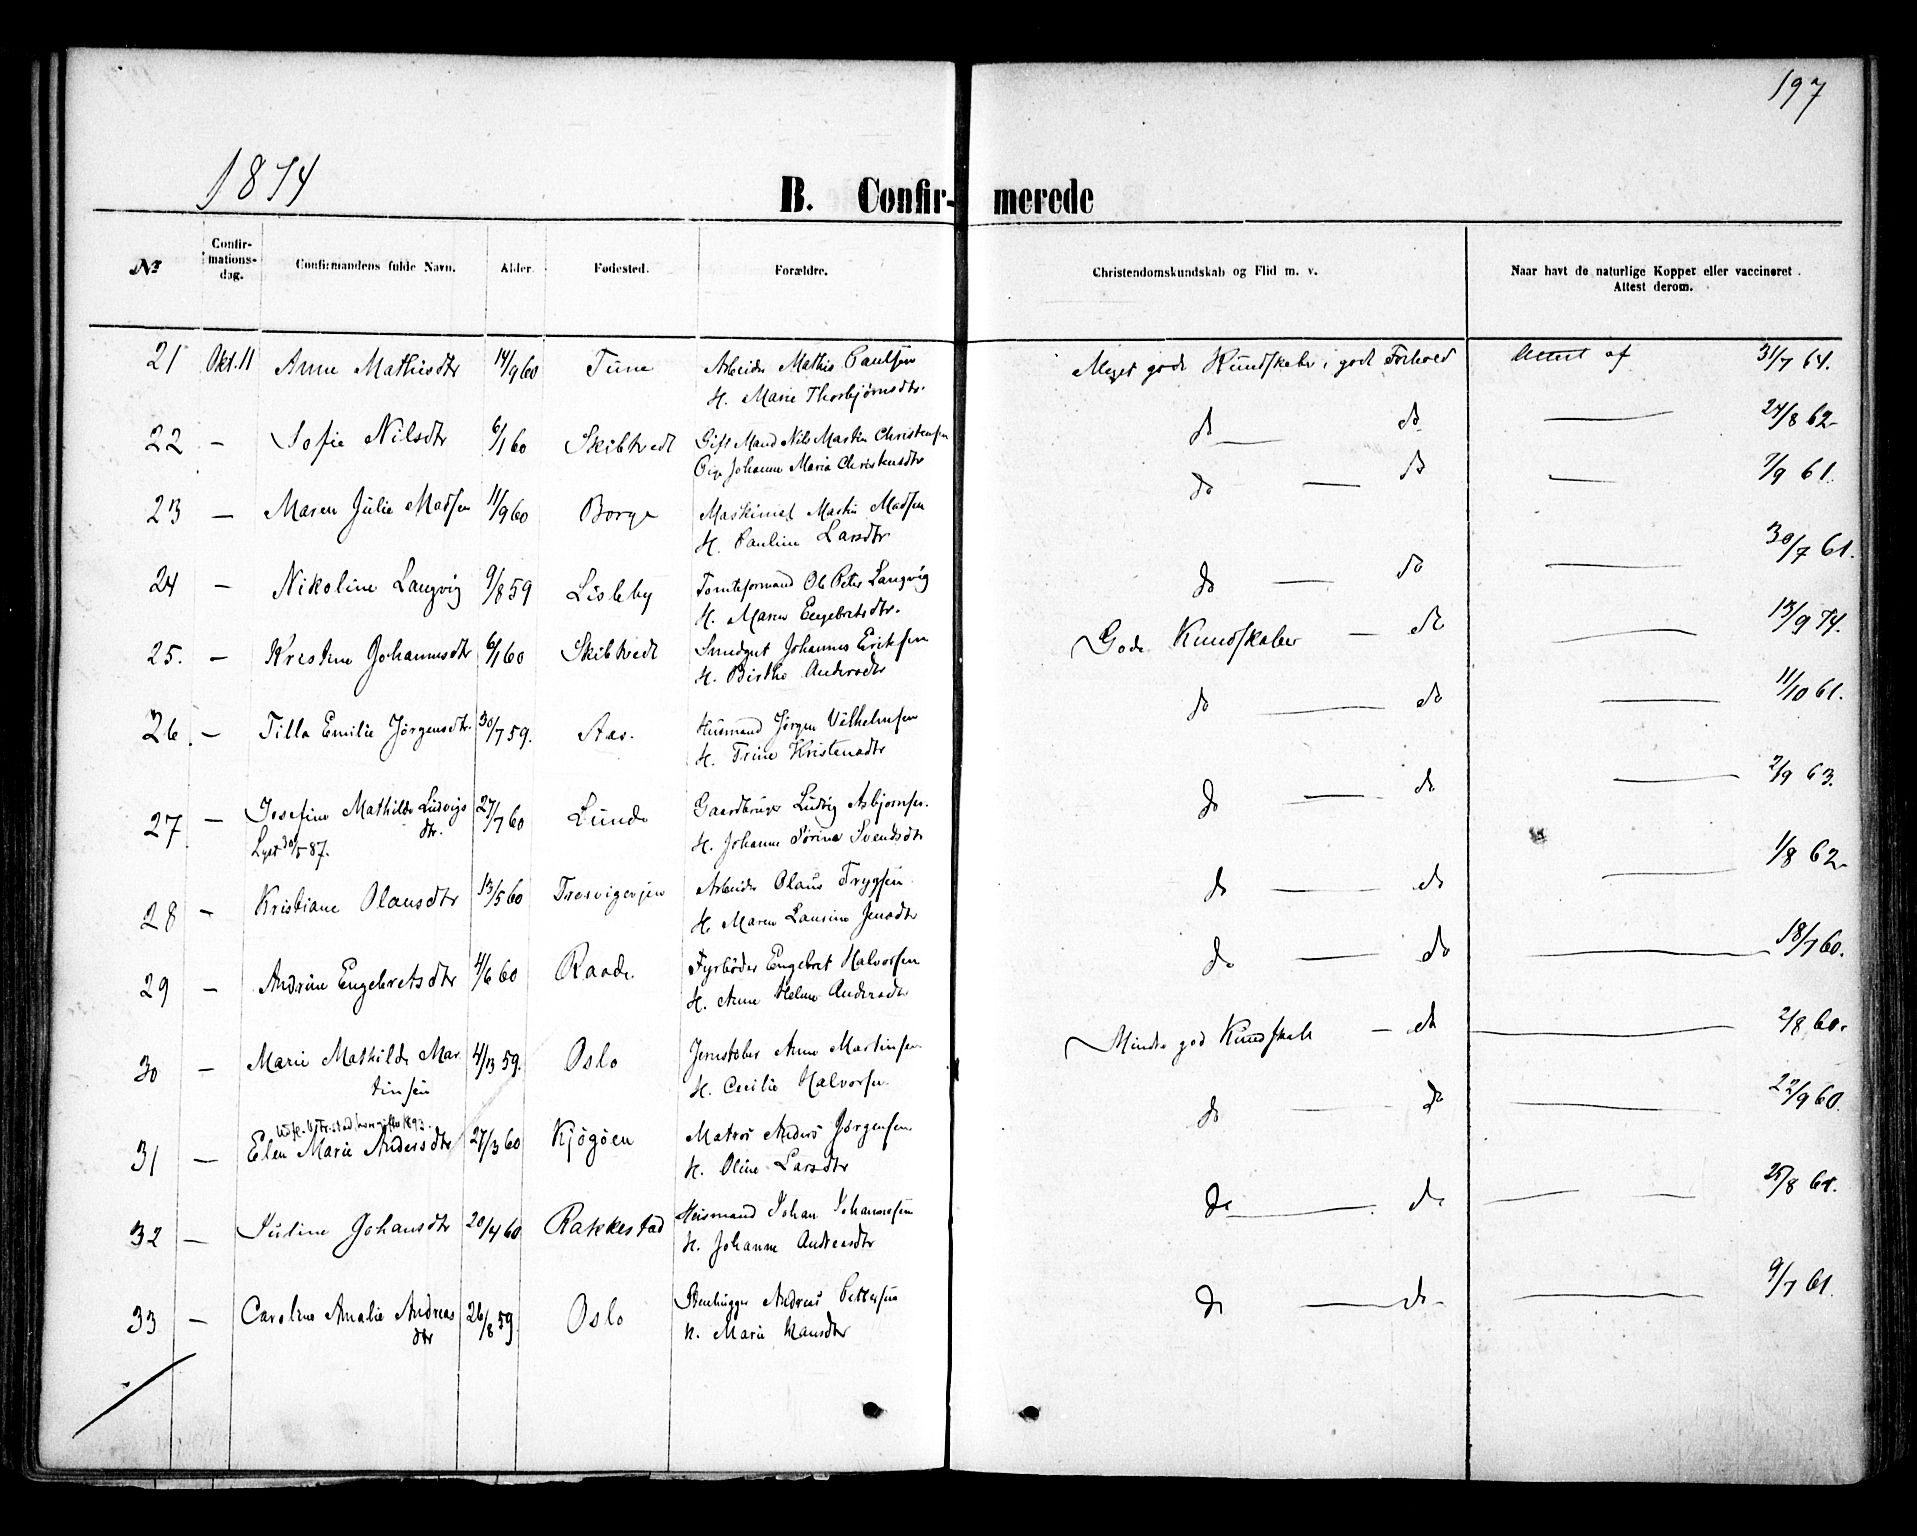 197
1874
B. Confir- merede
Nr Confir-mations-dag. Confirmandens fulde Navn. Alder. Fødested. Forældre. Christendomskundskab og Flid m. v. Naar havt de naturlige Kopper eller vaccineret. Attest derom.
21 Okt. 11 Anne Mathisdtr 14/9 60 Tune Arbeider Mathis Paulsen Meget gode Kundskaber, godt Forhold Attest af 31/7 61.
H. Marie Thorbjørnsdtr.
22 — Sofie Nilsdtr 6/1 60 Skibtvedt Gift Mand Nils Martin Christensen do — do — 24/8 62
Pige Johanne Maria Christensdtr
23 — Maren Julie Madsen 11/9 60 Borge Maskinist Martin Madsen do — do — 7/9 61.
H. Pauline Larsdtr
24 — Nikoline Langvig 9/8 59 Lisleby Tomteformand Ole Peter Langvig do — do — 30/7 61.
H. Maren Engebretsdtr.
25. — Kristine Johannesdtr 6/1 60 Skibtvedt Smedgut Johannes Eriksen Gode Kundskaber — do — 13/9 74.
H. Birthe Andersdtr
26. — Tilla Emilie Jørgensdtr. 30/7 59. Aas. Husmand Jørgen Vilhelmsen do — do — 11/10 61.
H. Trine Kristensdtr
27 — Josefine Mathilde Ludvigs 27/7 60 Lunde Gaardbruger Ludvig Asbjørnsen. do — do — 2/9 63.
dtr.
Lyst 30/5 87. H. Johanne Sørine Svendsdtr
28 — Kristiane Olausdtr 13/5 60 Trosvigevjen Arbeider Olaus Trygsen do — do — 1/8 62
H. Maren Laurine Jensdtr
29 — Andrine Engebretsdtr 4/6 60 Raade. Fyrbøder Engebret Halvorsen do — do — 18/7 60.
H. Anne Helene Andersdtr
30 — Marie Mathilde Mar 4/13 59. Oslo Jernstøber Arne Martinsen Mindre god Kundskab — do — 2/8 60.
tinsen H. Cecilie Halvorsen.
31 — Elen Marie Andersdtr 27/3 60 Kjøgøen Matros Anders Jørgensen do — do — 22/9 60.
H. Oline Larsdtr
32 — Juline Johansdtr 20/4 60 Rakkestad Husmand Johan Johannesen do — do — 25/8 61.
H. Johanne Andreasdtr
33 — Caroline Amalie Andreas 26/8 59 Oslo Stenhugger Andreas Pettersen do — do — 9/7 61.
dtr H. Marie Hansdtr